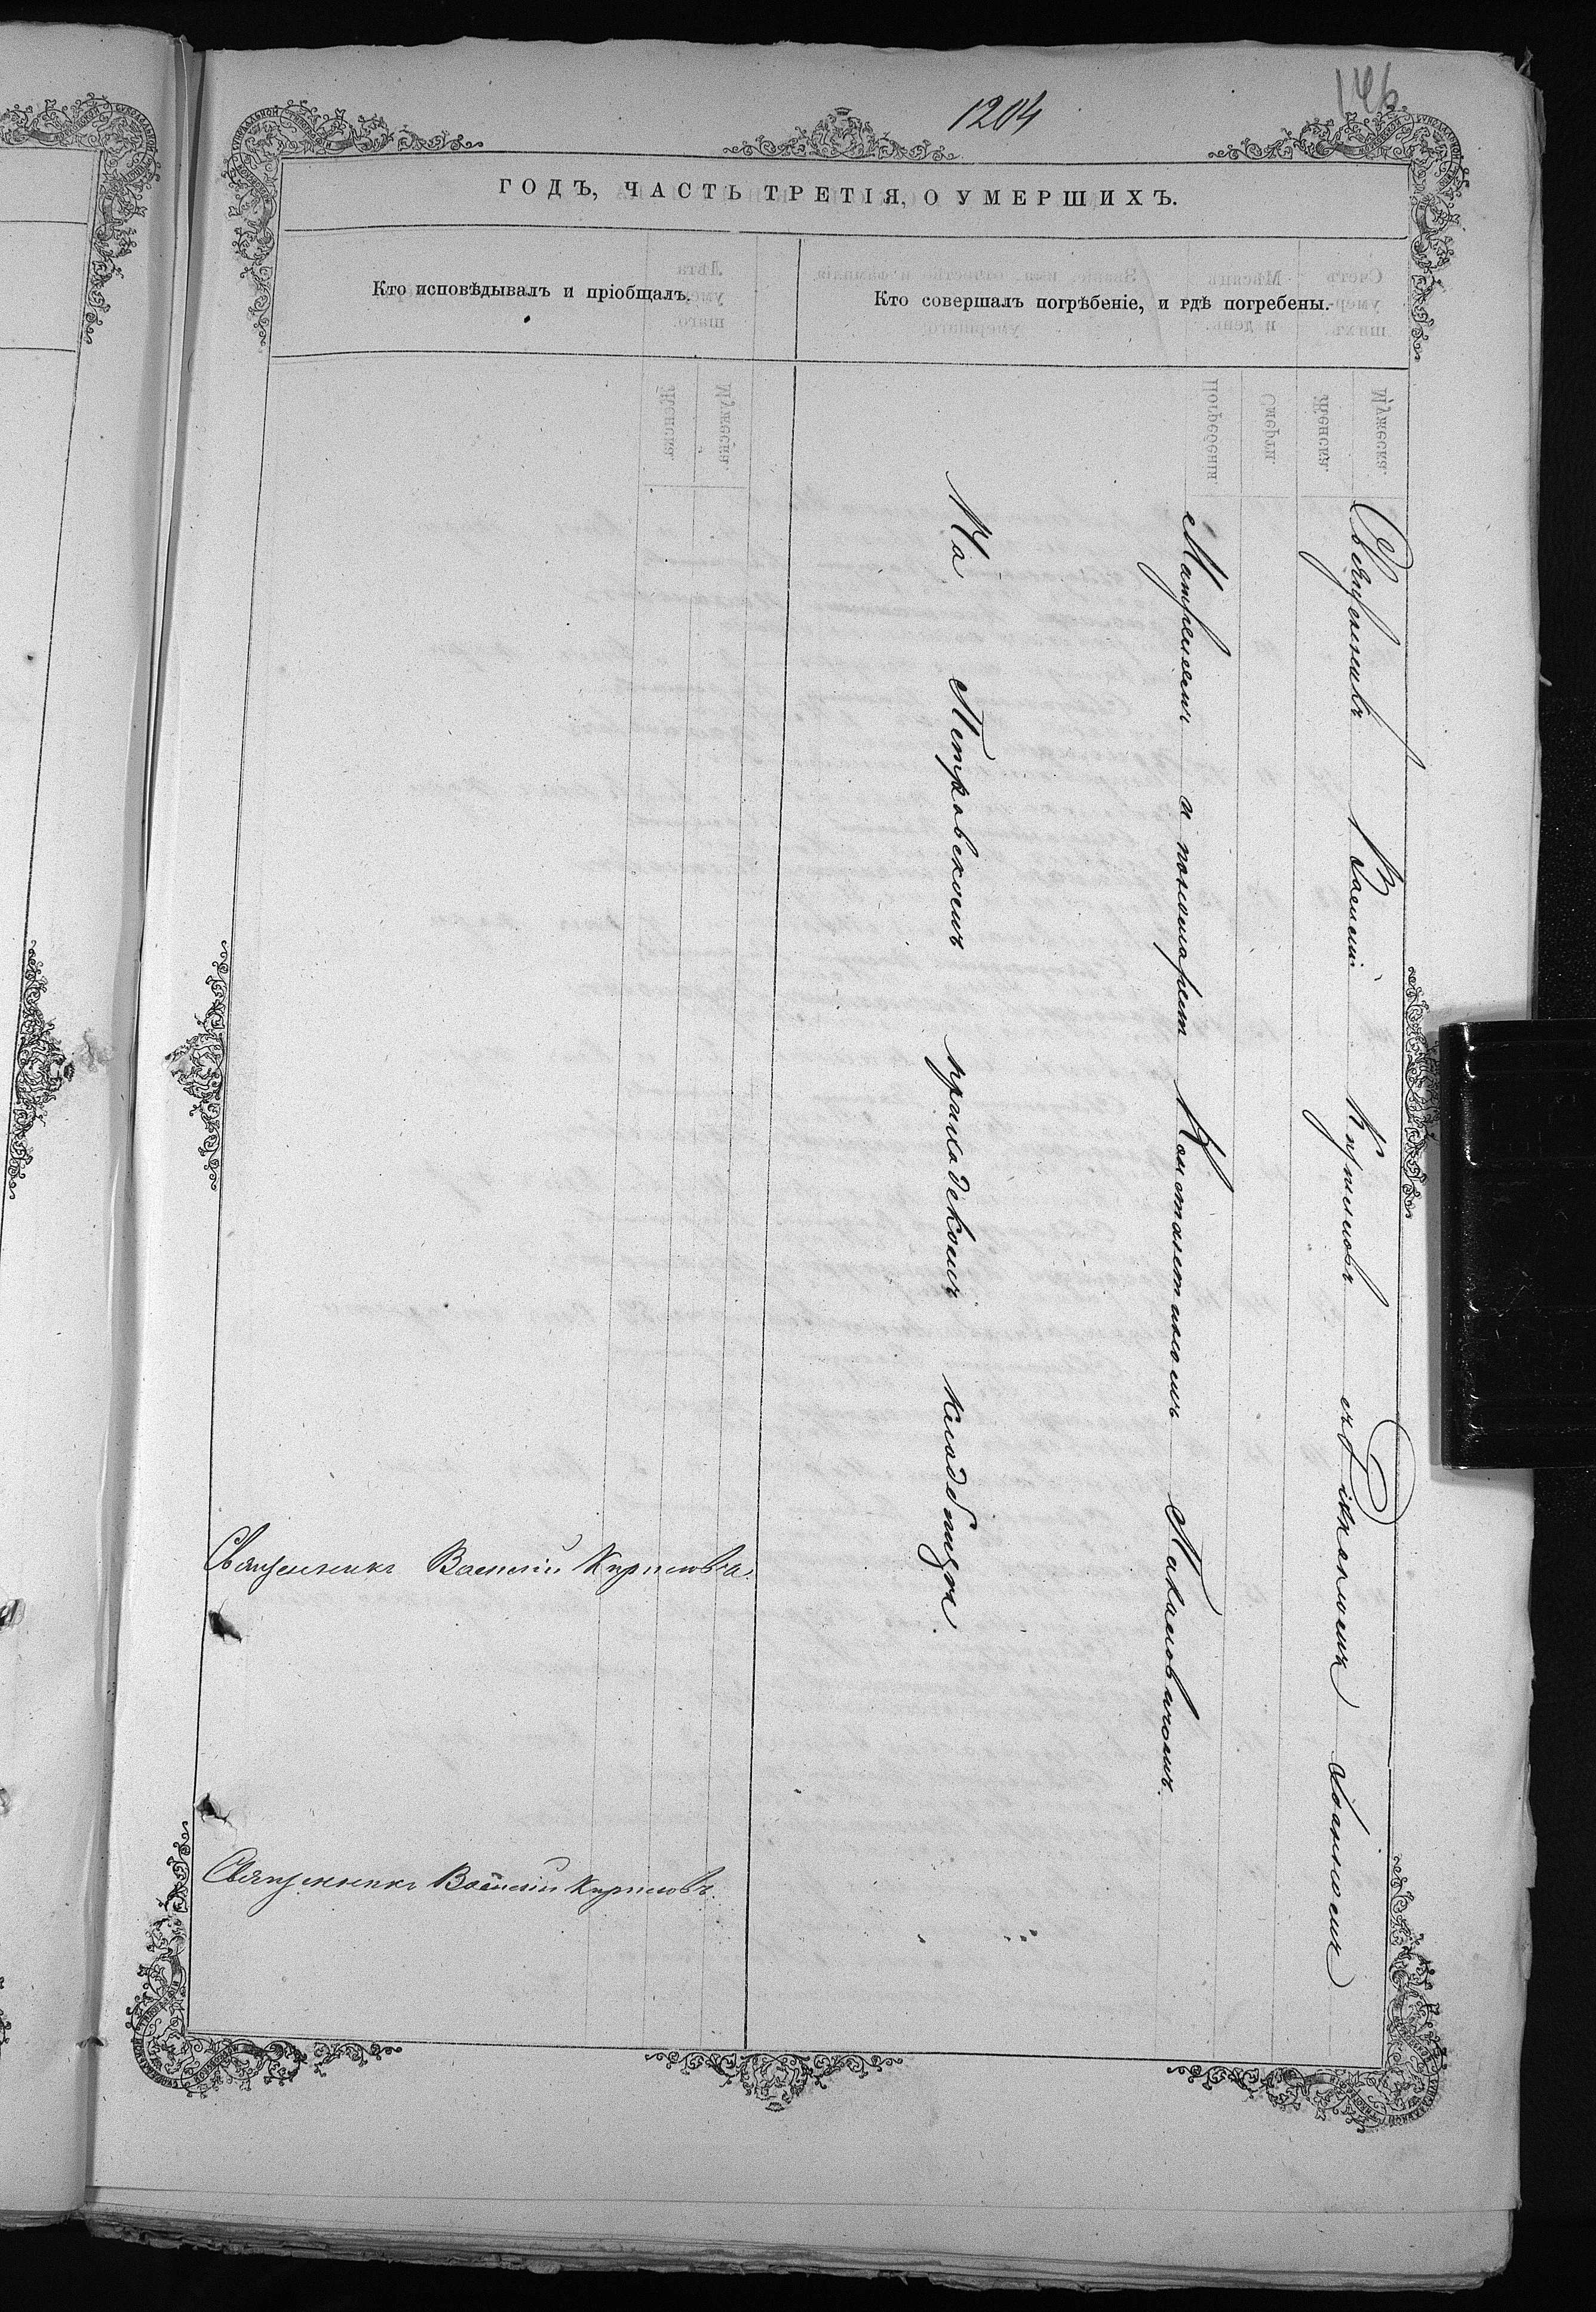 1204
146
ГОДЪ, ЧАСТЬ ТРЕТІЯ, О УМЕРШИХЪ.
Кто исповѣдывалъ и пріобщалъ.
Кто совершалъ погрѣбеніе, и гдѣ погребены.
Священникъ Василій Кириловъ съ Діакономъ Іоанномъ
и пономаремъ Константиномъ
На Петровскомъ приходскомъ кладбищѣ.
Священникъ Василій Кириловъ.
Священникъ Василій Кириловъ.